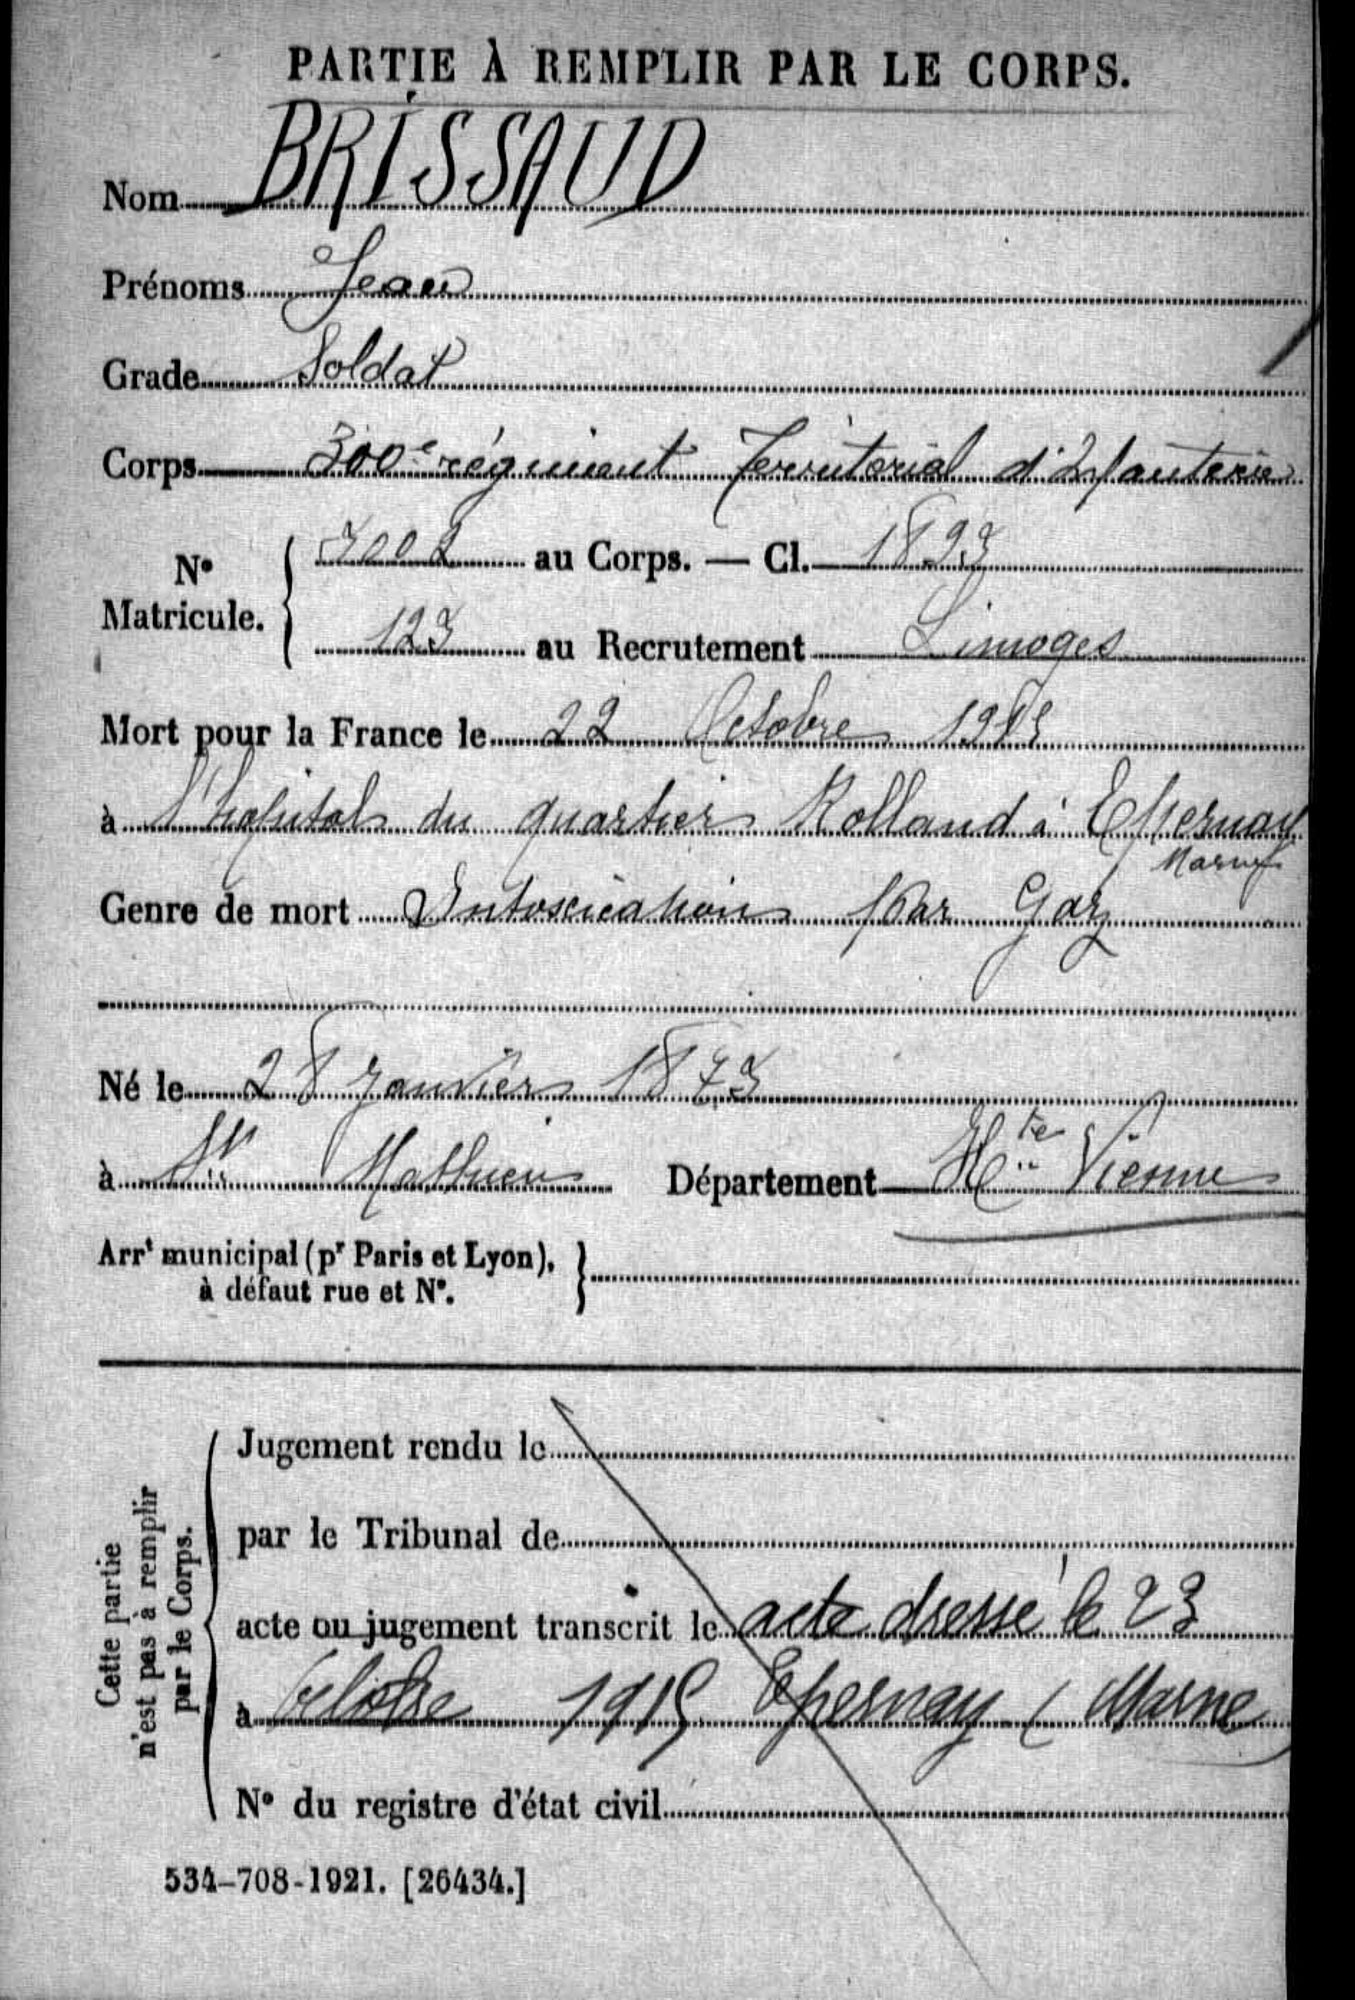 PARTIE À REMPLIR PAR LE CORPS.
Nom BRISSAUD
Prénoms Jean
Grade Soldat
Corps 300e régiment Territorial d'Infanterie
No Matricule. { 3002 au Corps. — Cl. 1893
123 au Recrutement Limoges
Mort pour la France le 22 Octobre 1915
à l'hôpital du quartier Rolland à Epernay
Marne
Genre de mort Intoxication par Gaz
Né le 28 Janvier 1873
à St Mathieu Département Hte Vienne
Arrt municipal (pr Paris et Lyon),
à défaut rue et No.
Cette partie
n'est pas à remplir
par le Corps.
Jugement rendu le
par le Tribunal de
acte ou jugement transcrit le acte dressé le 23
à Octobre 1915 Epernay (Marne
No du registre d'état civil
534-708-1921. [26434.]